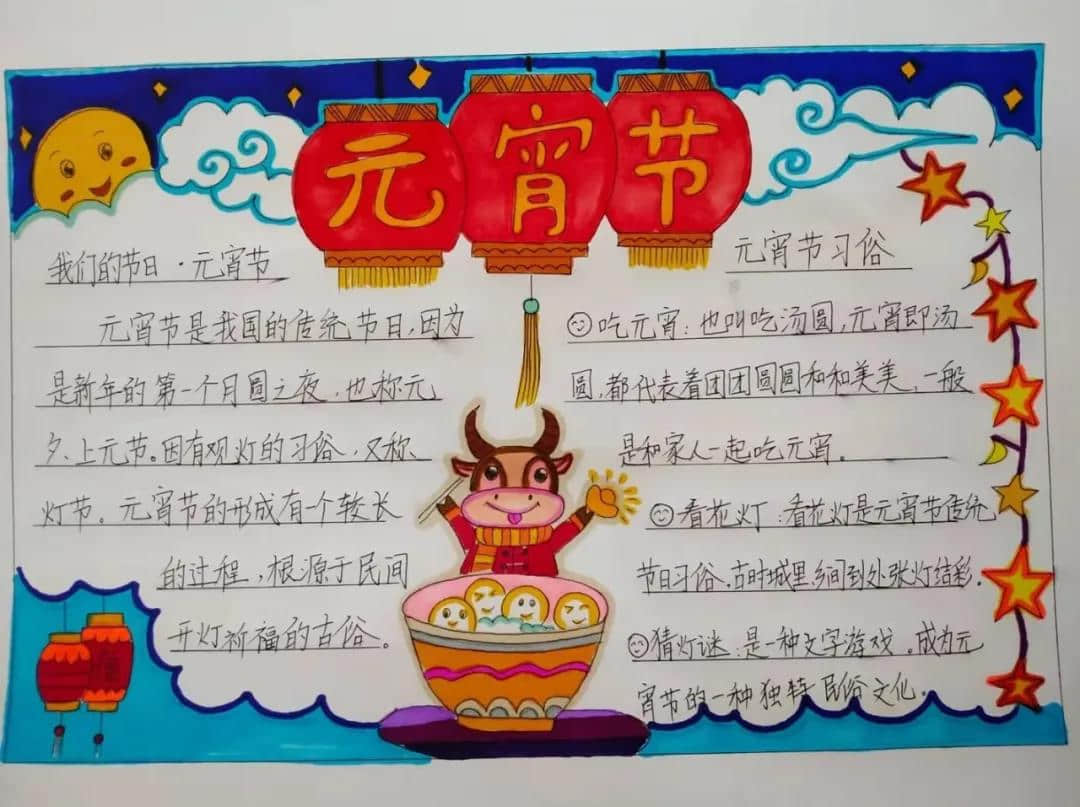 元宵节
我们的节日·元宵节
元宵节是我国的传统节日,因为
是新年的第一个月圆之夜,也称元
夕、上元节。因有观灯的习俗,又称
灯节。元宵节的形成有一个较长
的过程,根源于民间
开灯祈福的古俗。
元宵节习俗
吃元宵:也叫吃汤圆,元宵即汤
圆,都代表着团团圆圆和和美美,一般
是和家人一起吃元宵。
看花灯:看花灯是元宵节传统
节日习俗.古时城里乡间到处张灯结彩.
猜灯谜:是一种文字游戏.成为元
宵节的一种独特民俗文化.